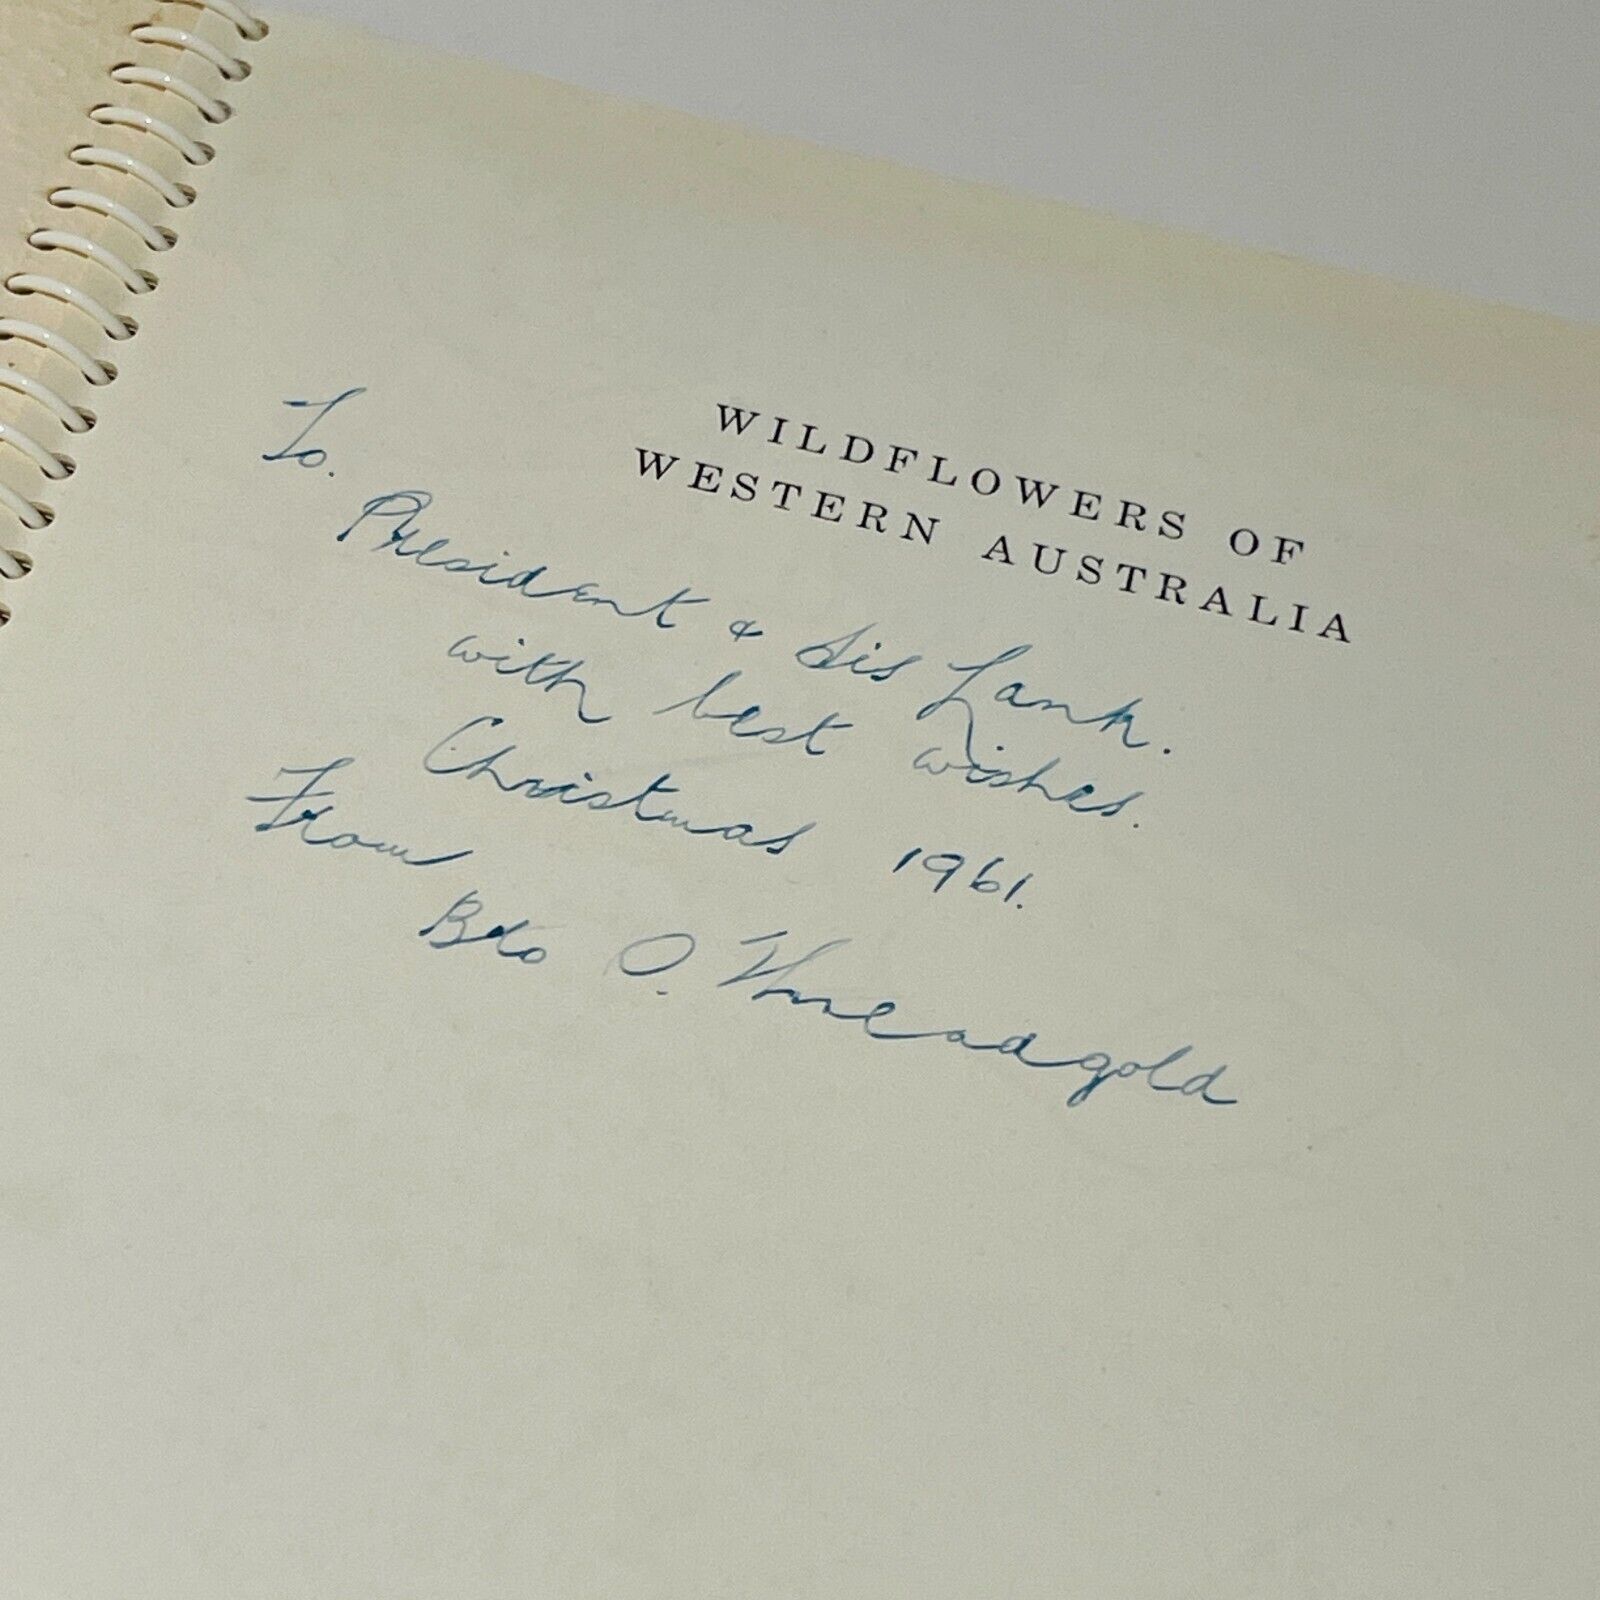 WILDFLOWERS OF
WESTERN AUSTRALIA
To.
President & Sis Lank.
with best wishes.
Christmas 1961.
From
Bro O. Threadgold